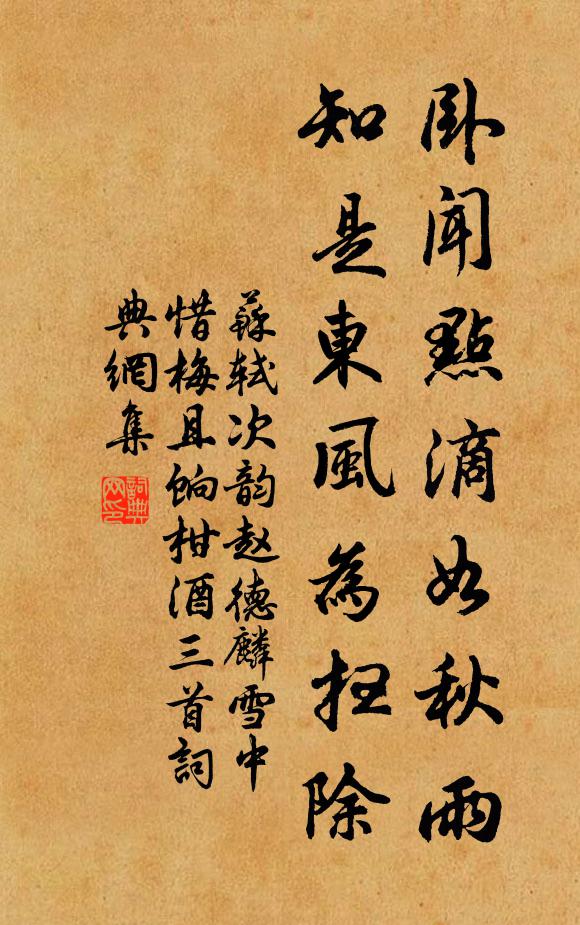 卧聞點滴如秋雨
知是東風為扫除
蘇軾次韵赵德麟雪中
惜梅且餉柑酒三首詞
典網集
詞典
网印